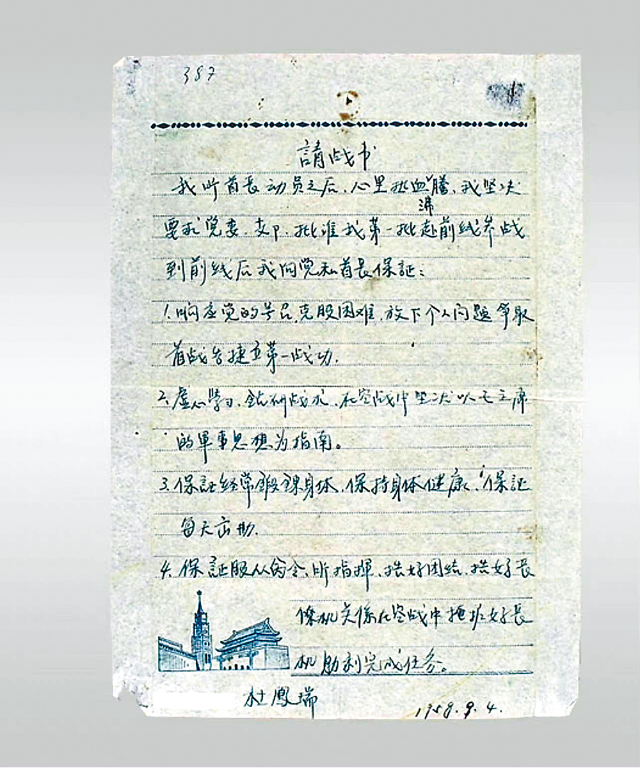 387
請战书
我听首長动员之后、心里热血沸騰、我坚决
要求党委、支卩、批准我第一批赴前线参战
到前线后我向党和首長保証：
1.响应党的号召克服困难、放下个人问题争取
首战告捷立第一战功.
2.虚心学习、鈷研战术、在空战中坚决以毛主席
的軍事思想为指南。
3.保証经常鍛鍊身体、保持身体健康、保証
每天出勤.
4.保証服从命令、听指揮、搞好团结、搞好長
僚机关係在空战中掩护好長
机勝利完成任务。
杜鳳瑞
1958.9.4.